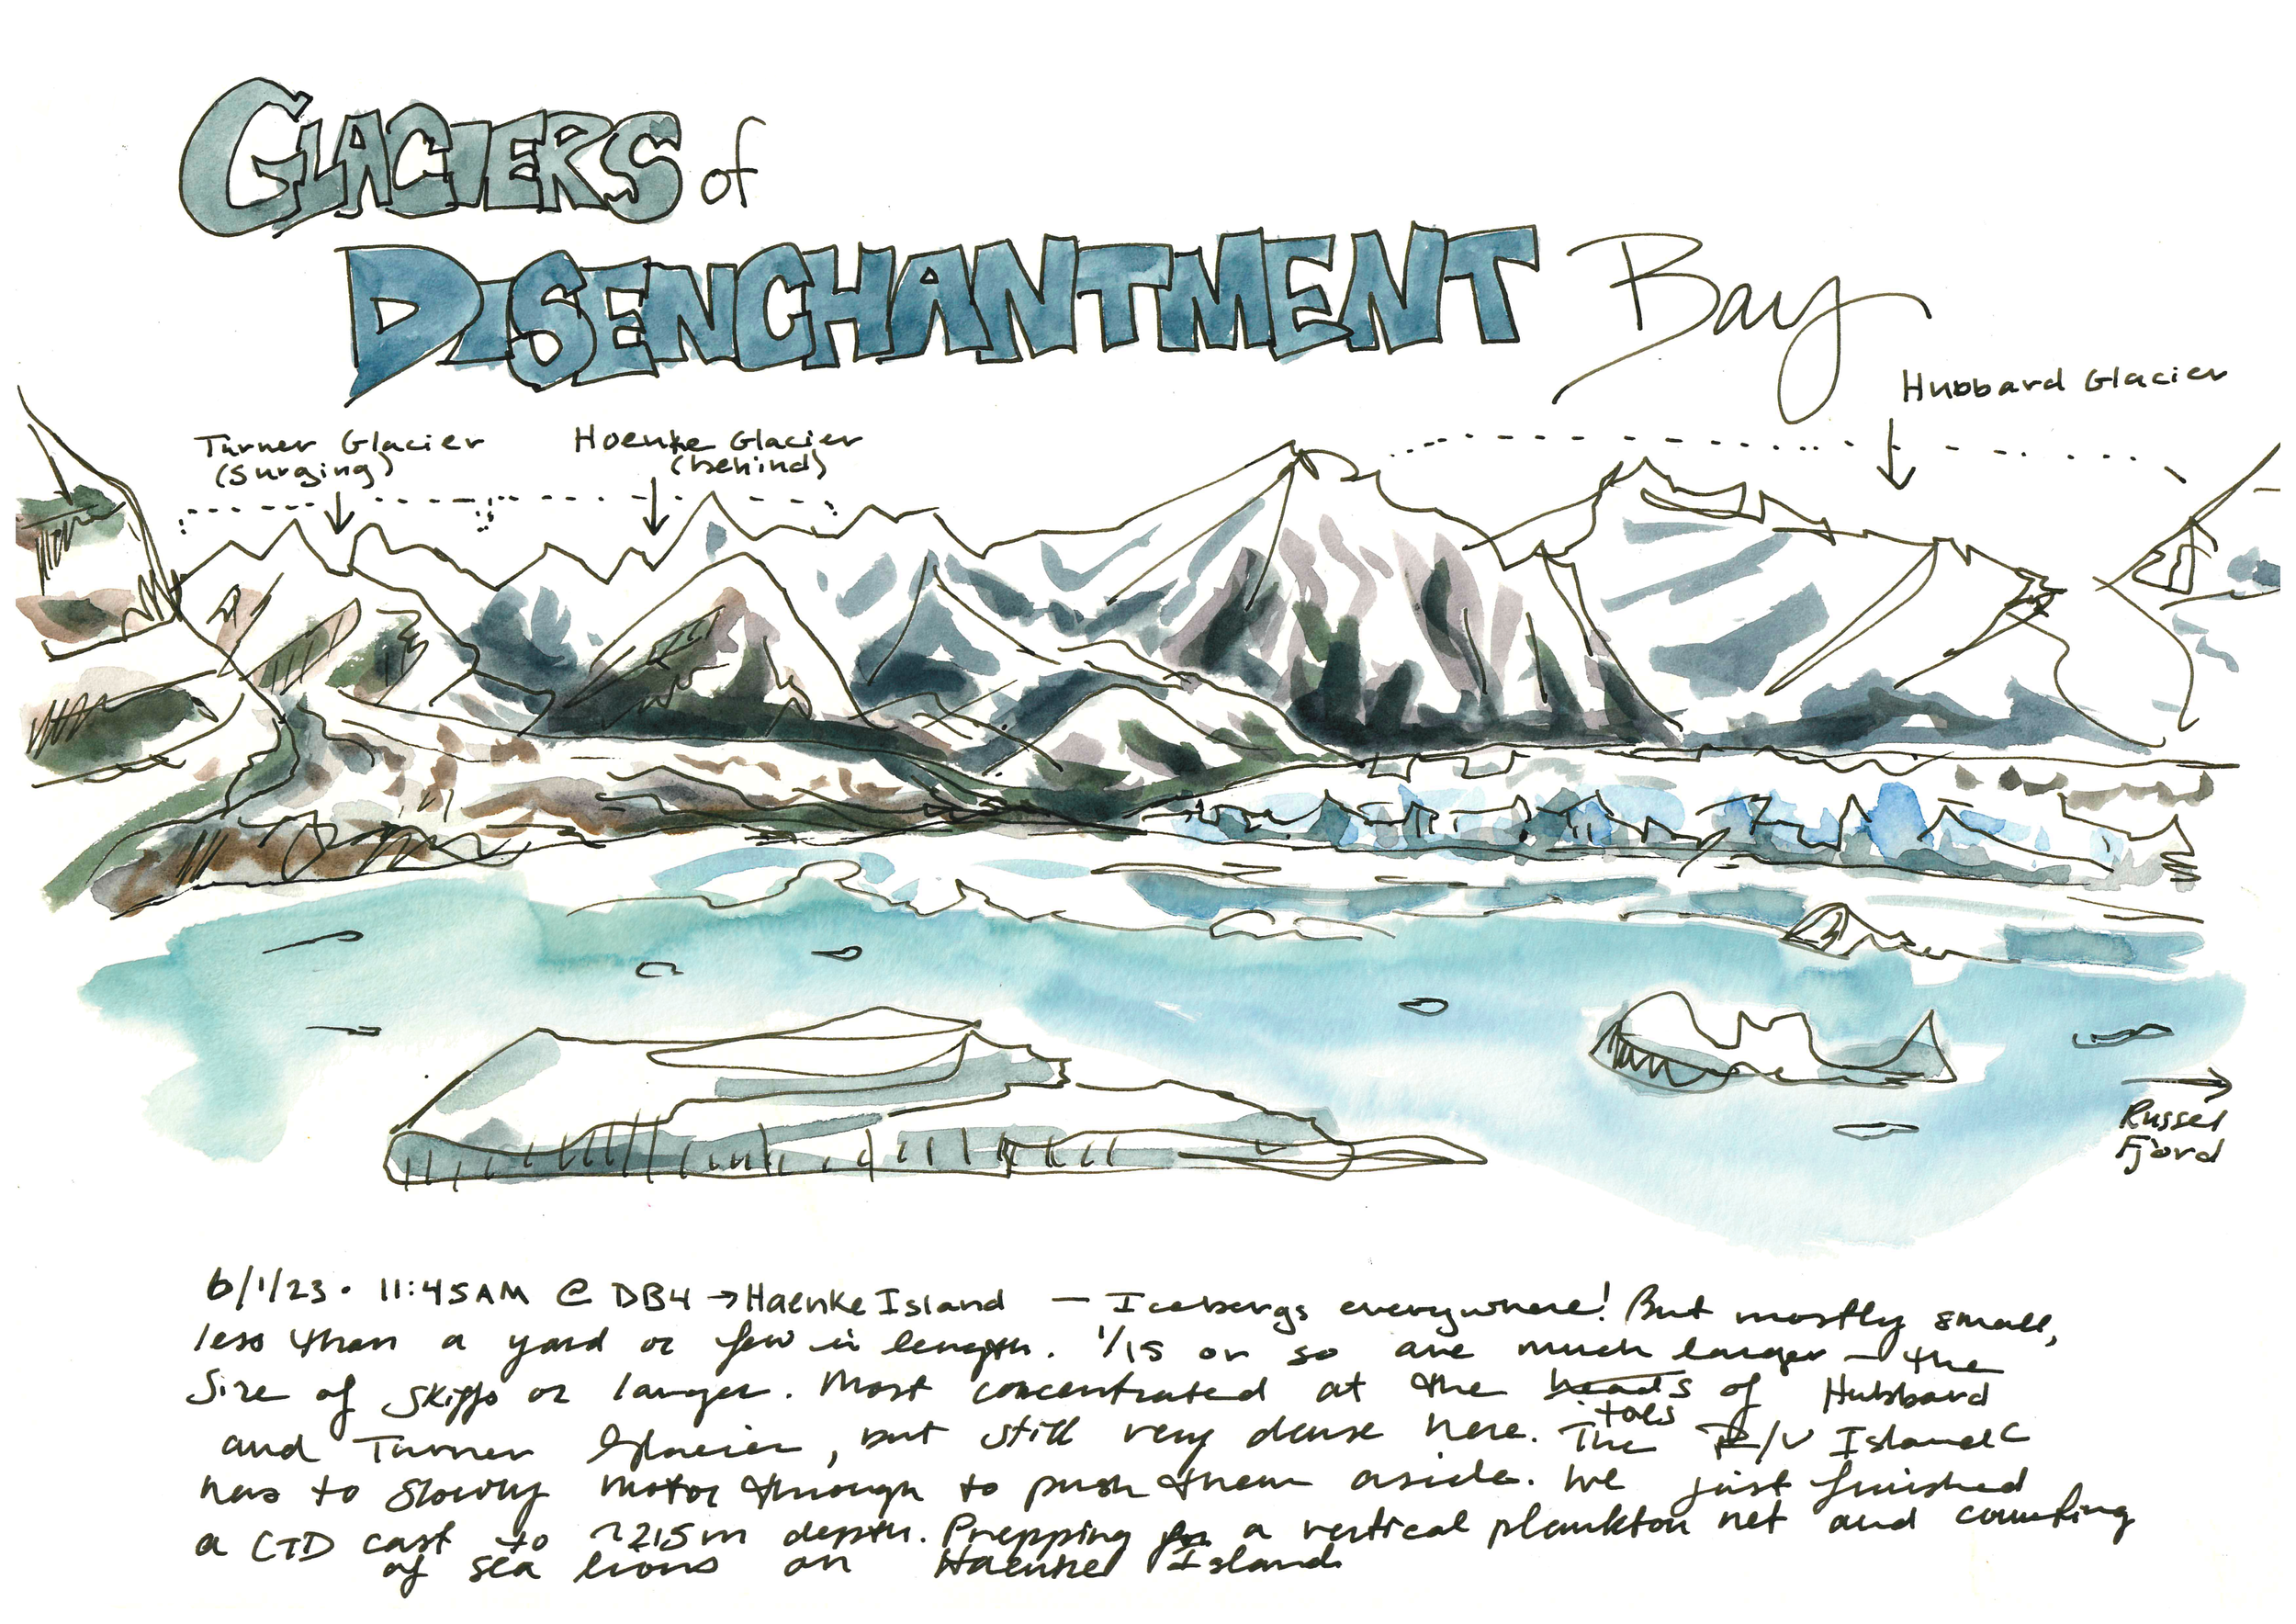 GLACIERS of
DISENCHANTMENT Bay
Hubbard Glacier
Turner Glacier
(surging)
Hoenke Glacier
(behind)
Russel
Fjord
6/1/23 · 11:45AM @ DB4 → Haenke Island — Icebergs everywhere! But mostly small,
less than a yard or few in length. 1/15 or so are much larger – the
size of skiffs or larger. Most concentrated at the heads of Hubbard
toes
and Turner Glacier, but still very dense here. The R/V Island C
has to slowly motor through to push them aside. We just finished
a CTD cast to ~215m depth. Prepping for a vertical plankton net and counting
of sea lions on Haenke Island